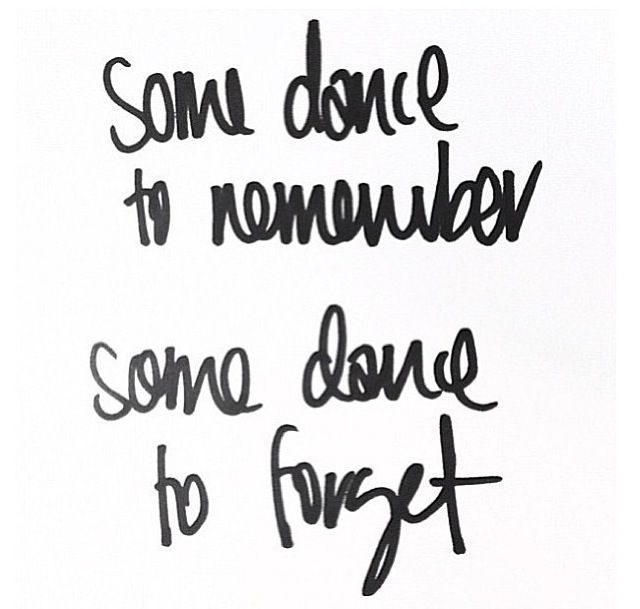 some dance
to remember
some dance
to forget